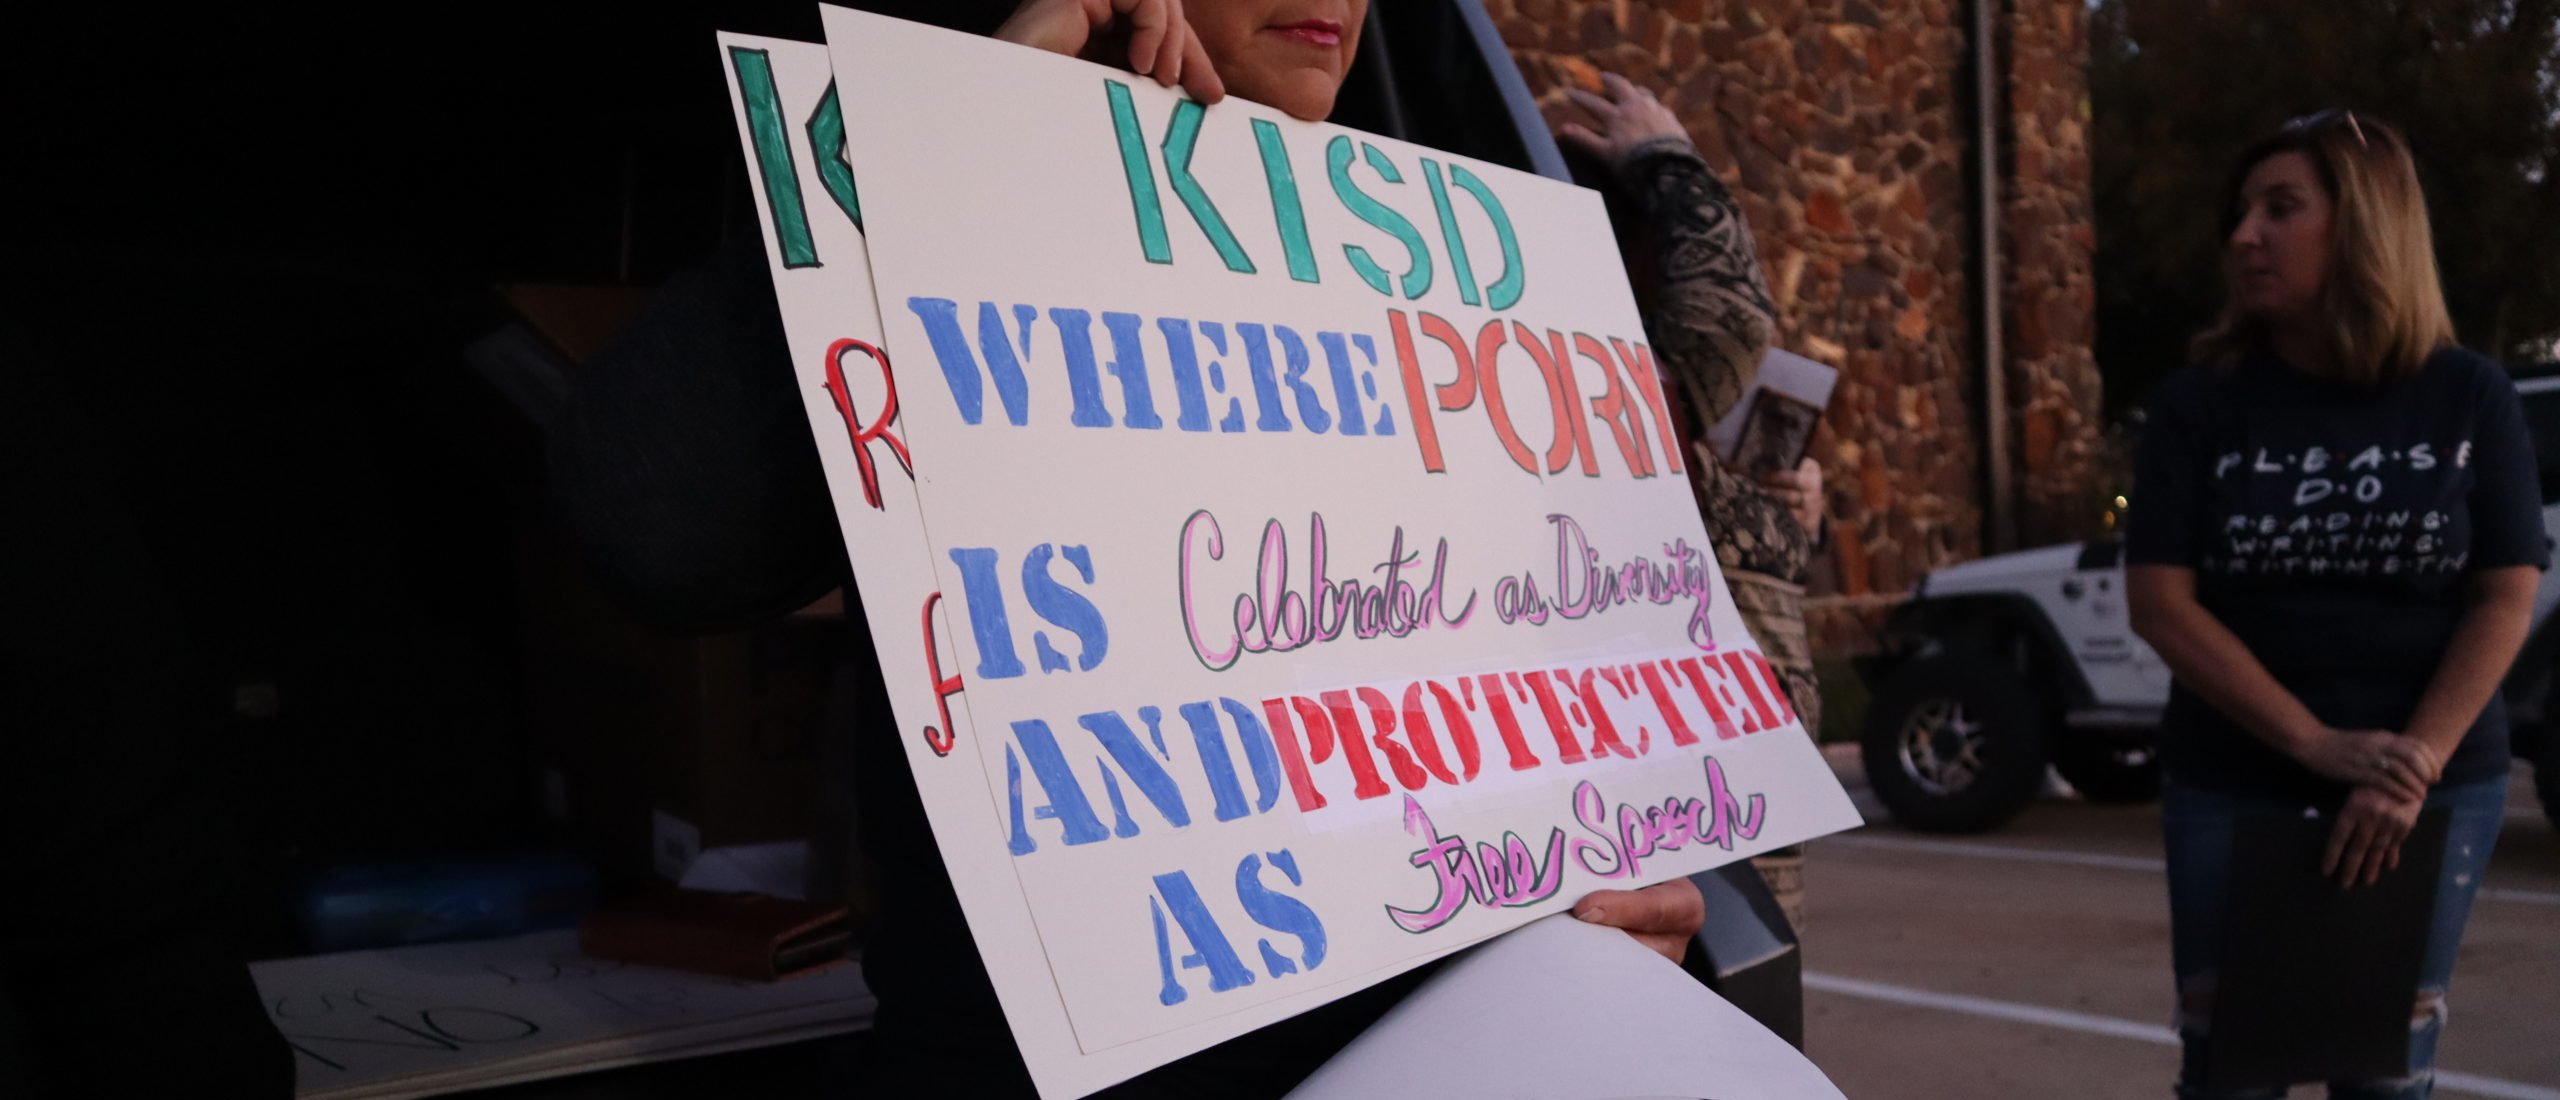 KISD
WHERE PORN
IS Celebrated as Diversity
AND PROTECTED
AS Free Speech
K
R
A
NO
P·L·E·A·S·E
D·O
R·E·A·D·I·N·G·
W·R·I·T·I·N·G·
A·R·I·T·H·M·E·T·I·C